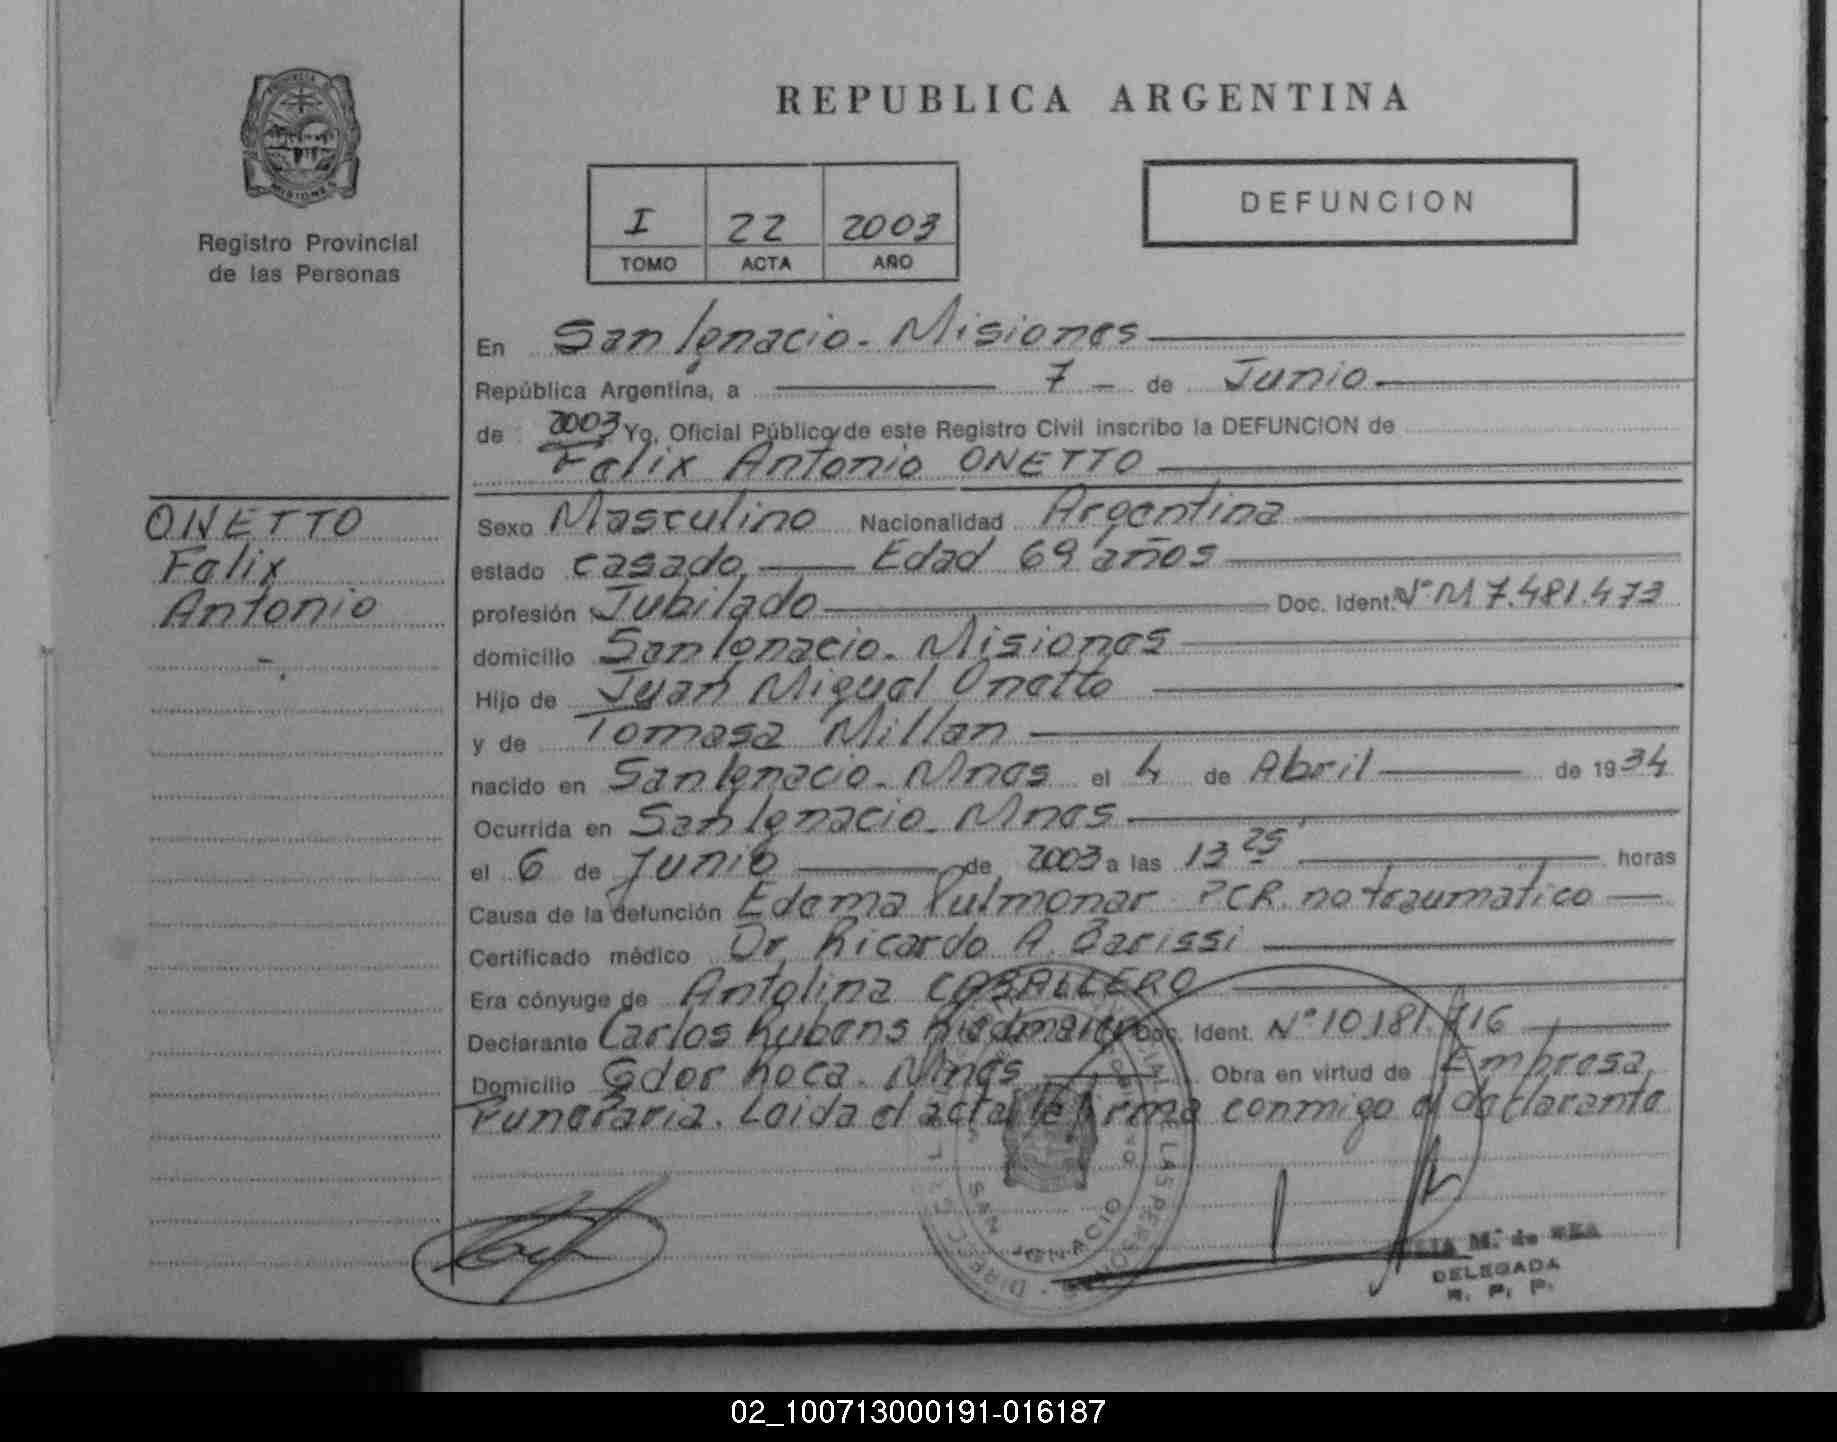 REPUBLICA ARGENTINA
Registro Provincial
de las Personas
MISIONES
I 22 2003
TOMO ACTA AÑO
DEFUNCION
En San Ignacio - Misiones
República Argentina, a 7 - de Junio
de 2003 Yo, Oficial Público de este Registro Civil inscribo la DEFUNCION de
Felix Antonio ONETTO
ONETTO
Felix
Antonio
Sexo Masculino Nacionalidad Argentina
estado casado Edad 69 años
profesión Jubilado Doc. Ident. Nº M 7.481.473
domicilio San Ignacio - Misiones
Hijo de Juan Miguel Onetto
y de Tomasa Millan
nacido en San Ignacio - Mnes el 4 de Abril de 1934
Ocurrida en San Ignacio - Mnes
el 6 de Junio de 2003 a las 13 25' horas
Causa de la defunción Edema Pulmonar PCR no traumatico
Certificado médico Dr. Ricardo A. Barissi
Era cónyuge de Antolina CABALLERO
Declarante Carlos Rubens Doc. Ident. Nº 10.181.716
Domicilio Gdor Roca - Mnes Obra en virtud de Empresa
Funeraria. Leida el acta la firma conmigo el declarante
SAN IGNACIO
M. de REA
DELEGADA
R. P. P.
02_100713000191-016187